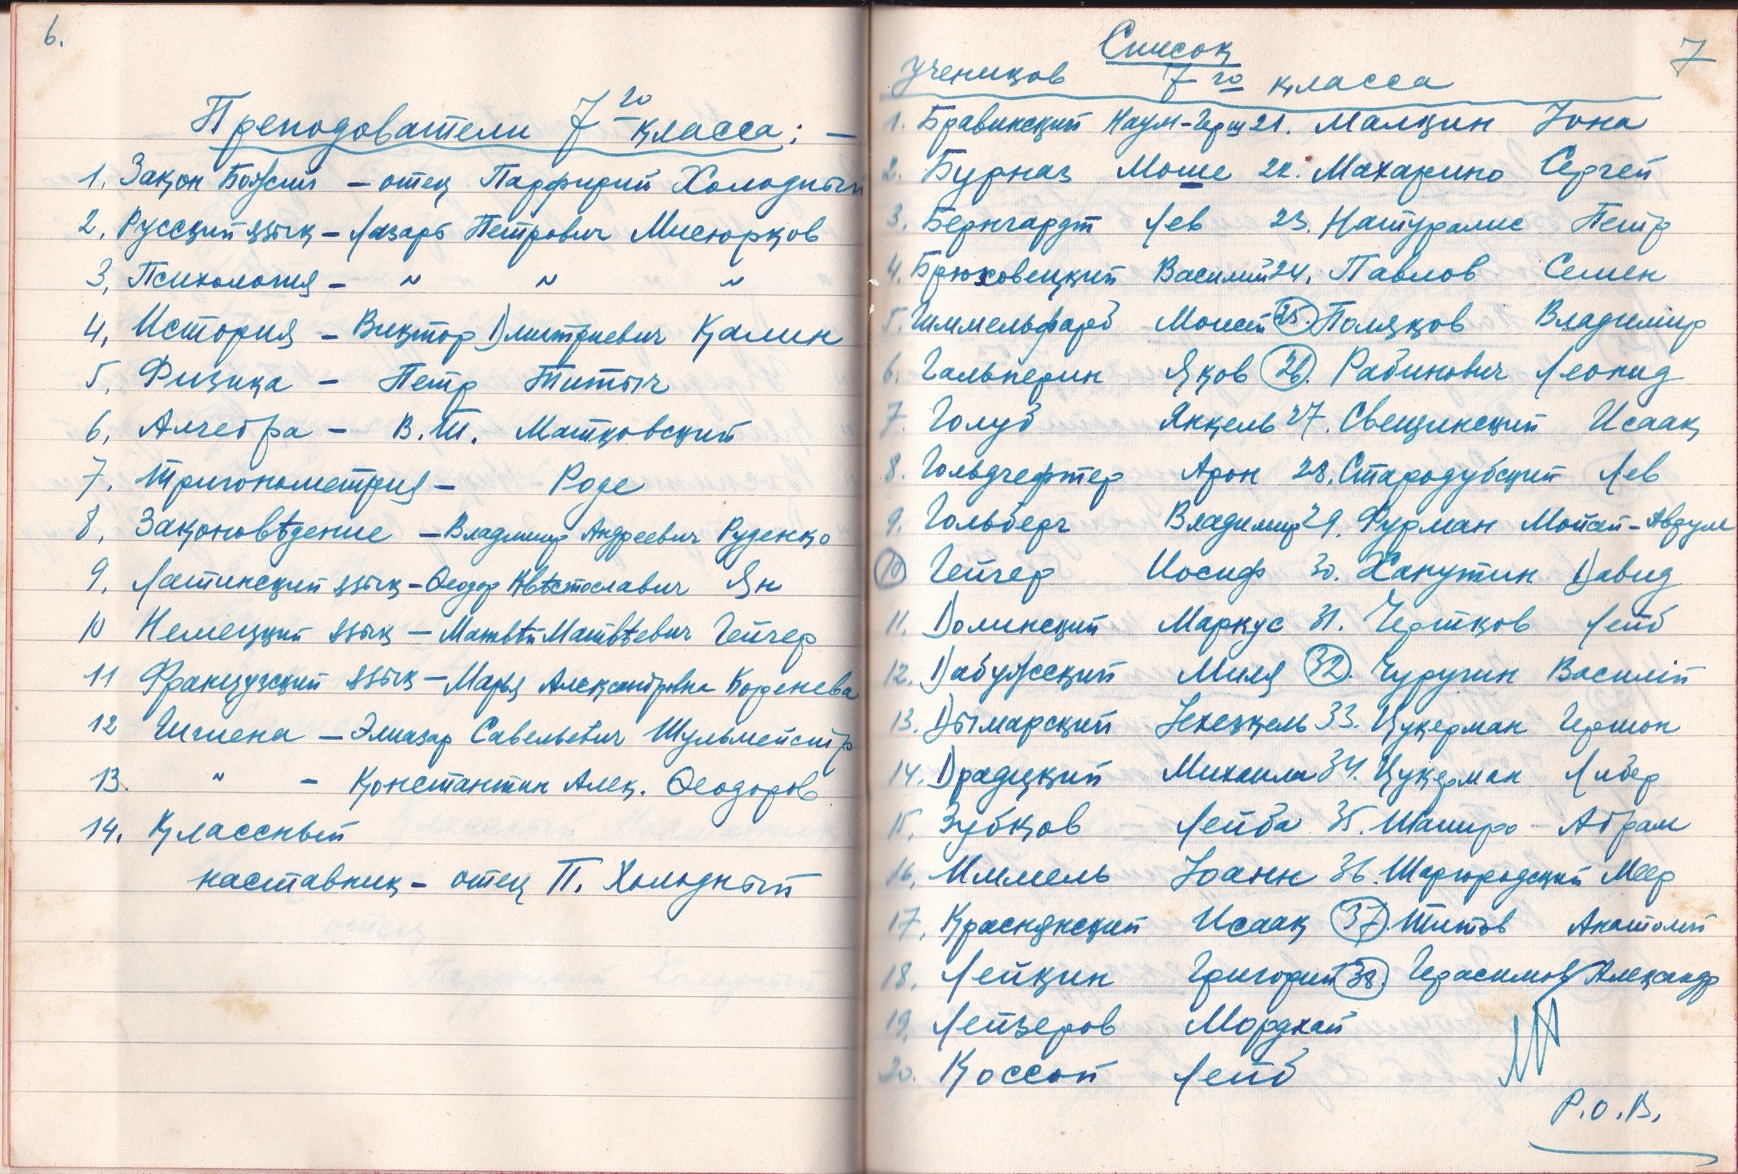 6.
Преподователи 7го класса: —
1. Закон Божий — отец Парфирий Холодный
2. Русский язык — Лазарь Петрович Мисюрков
3. Психология — " " "
4. История — Виктор Дмитриевич Калин
5. Физика — Петр Титыч
6. Алгебра — В. Т. Матковский
7. Тригонометрия — Роде
8. Законовѣдение — Владимир Андреевич Руденко
9. Латинский язык — Ѳеодор Ян
10 Немецкий язык — Матвѣй Матвѣевич Гейчер
11 Французский язык — Марья Александровна
12 Гигиена — Элиазар Савельевич Шульмейстр
13. " — Константин Алек. Ѳеодоров
14. Классный
наставник — отец П. Холодный
7
Список
учеников 7го класса
1. Бравинский Наум-Герш 21. Малкин Иона
2. Бурназ Моше 22. Махарино Сергей
3. Бернгардт Лев 23. Натуралис Петр
4. Брюховецкий Василий 24. Павлов Семен
5. Гиммельфарб Моисей 25. Поляков Владимир
6. Гальперин Яков 26. Рабинович Леонид
7. Голуб Янкель 27. Свещинский Исаак
8. Гольдгефтер Арон 28. Стародубский Лев
9. Гольберг Владимир 29. Фурман Мойсей-Аврум
10 Гейчер Иосиф 30. Ханутин Давид
11. Долинский Маркус 31. Чертков Лейб
12. Дабужский Миля 32. Чуругин Василий
13. Дымарский Иехезкель 33. Цукерман Гершон
14. Драцкий Михаил 34. Цукерман Либер
15. Зубков Лейба 35. Шапиро — Абрам
16. Иммель Иоанн 36. Шаргородский Меер
17. Краснянский Исаак 37. Титов Анатолий
18. Лейкин Григорий 38. Герасимов Александр
19. Лейзеров Мордхай
20. Коссой Лейб
Р.О.В.